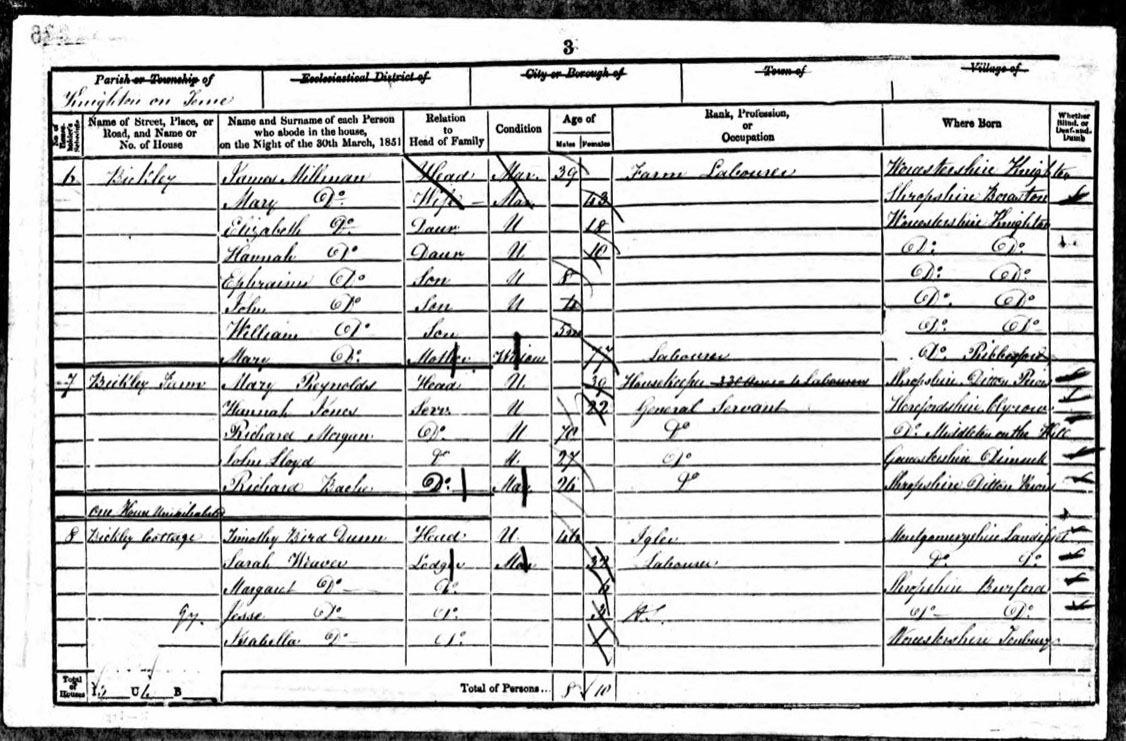 3
Parish or Township of Ecclesiastical District of City or Borough of Town of Village of
Knighton on Teme
Name of Street, Place, or Road, and Name or No. of House Name and Surname of each Person who abode in the house, on the Night of the 30th March, 1851 Relation to Head of Family Condition Age of Males Females Rank, Profession, or Occupation Where Born Whether Blind, or Deaf-and-Dumb
6 Bickley James Millman Head Mar. 39 Farm Labourer Worcestershire Knighton
Mary Do Wife Mar 43 Shropshire Boraston
Elizabeth Do Daur U 18 Worcestershire Knighton
Hannah Do Daur U 10 Do. Do.
Ephraim Do Son U 8 Do. Do.
John Do Son U 4 Do. Do.
William Do Son Do. Do.
Mary Do. Mother Widow 77 Labourer Do. Ribbesford
7 Bickley Farm Mary Reynolds Head U. 39 Housekeeper Shropshire Ditton Priors
Hannah Jones Serv. U 22 General Servant Herefordshire
Richard Morgan Do. U 70 Do Do. Middleton on the Hill
John Lloyd Do U. 27 Do
Richard Bache Do. Mar 26 Do Shropshire Ditton Priors
One House Uninhabited
8 Bickley Cottage Timothy Bird Dunn Head U. 46 Montgomeryshire
Sarah Weaver Lodger Mar 32 Labourer Do. Do.
Margaret Do Do. 6 Shropshire Burford
Jesse Do Do. Do Do.
Isabella Do Do. Worcestershire Tenbury
Total of Houses I U B Total of Persons... 8 10